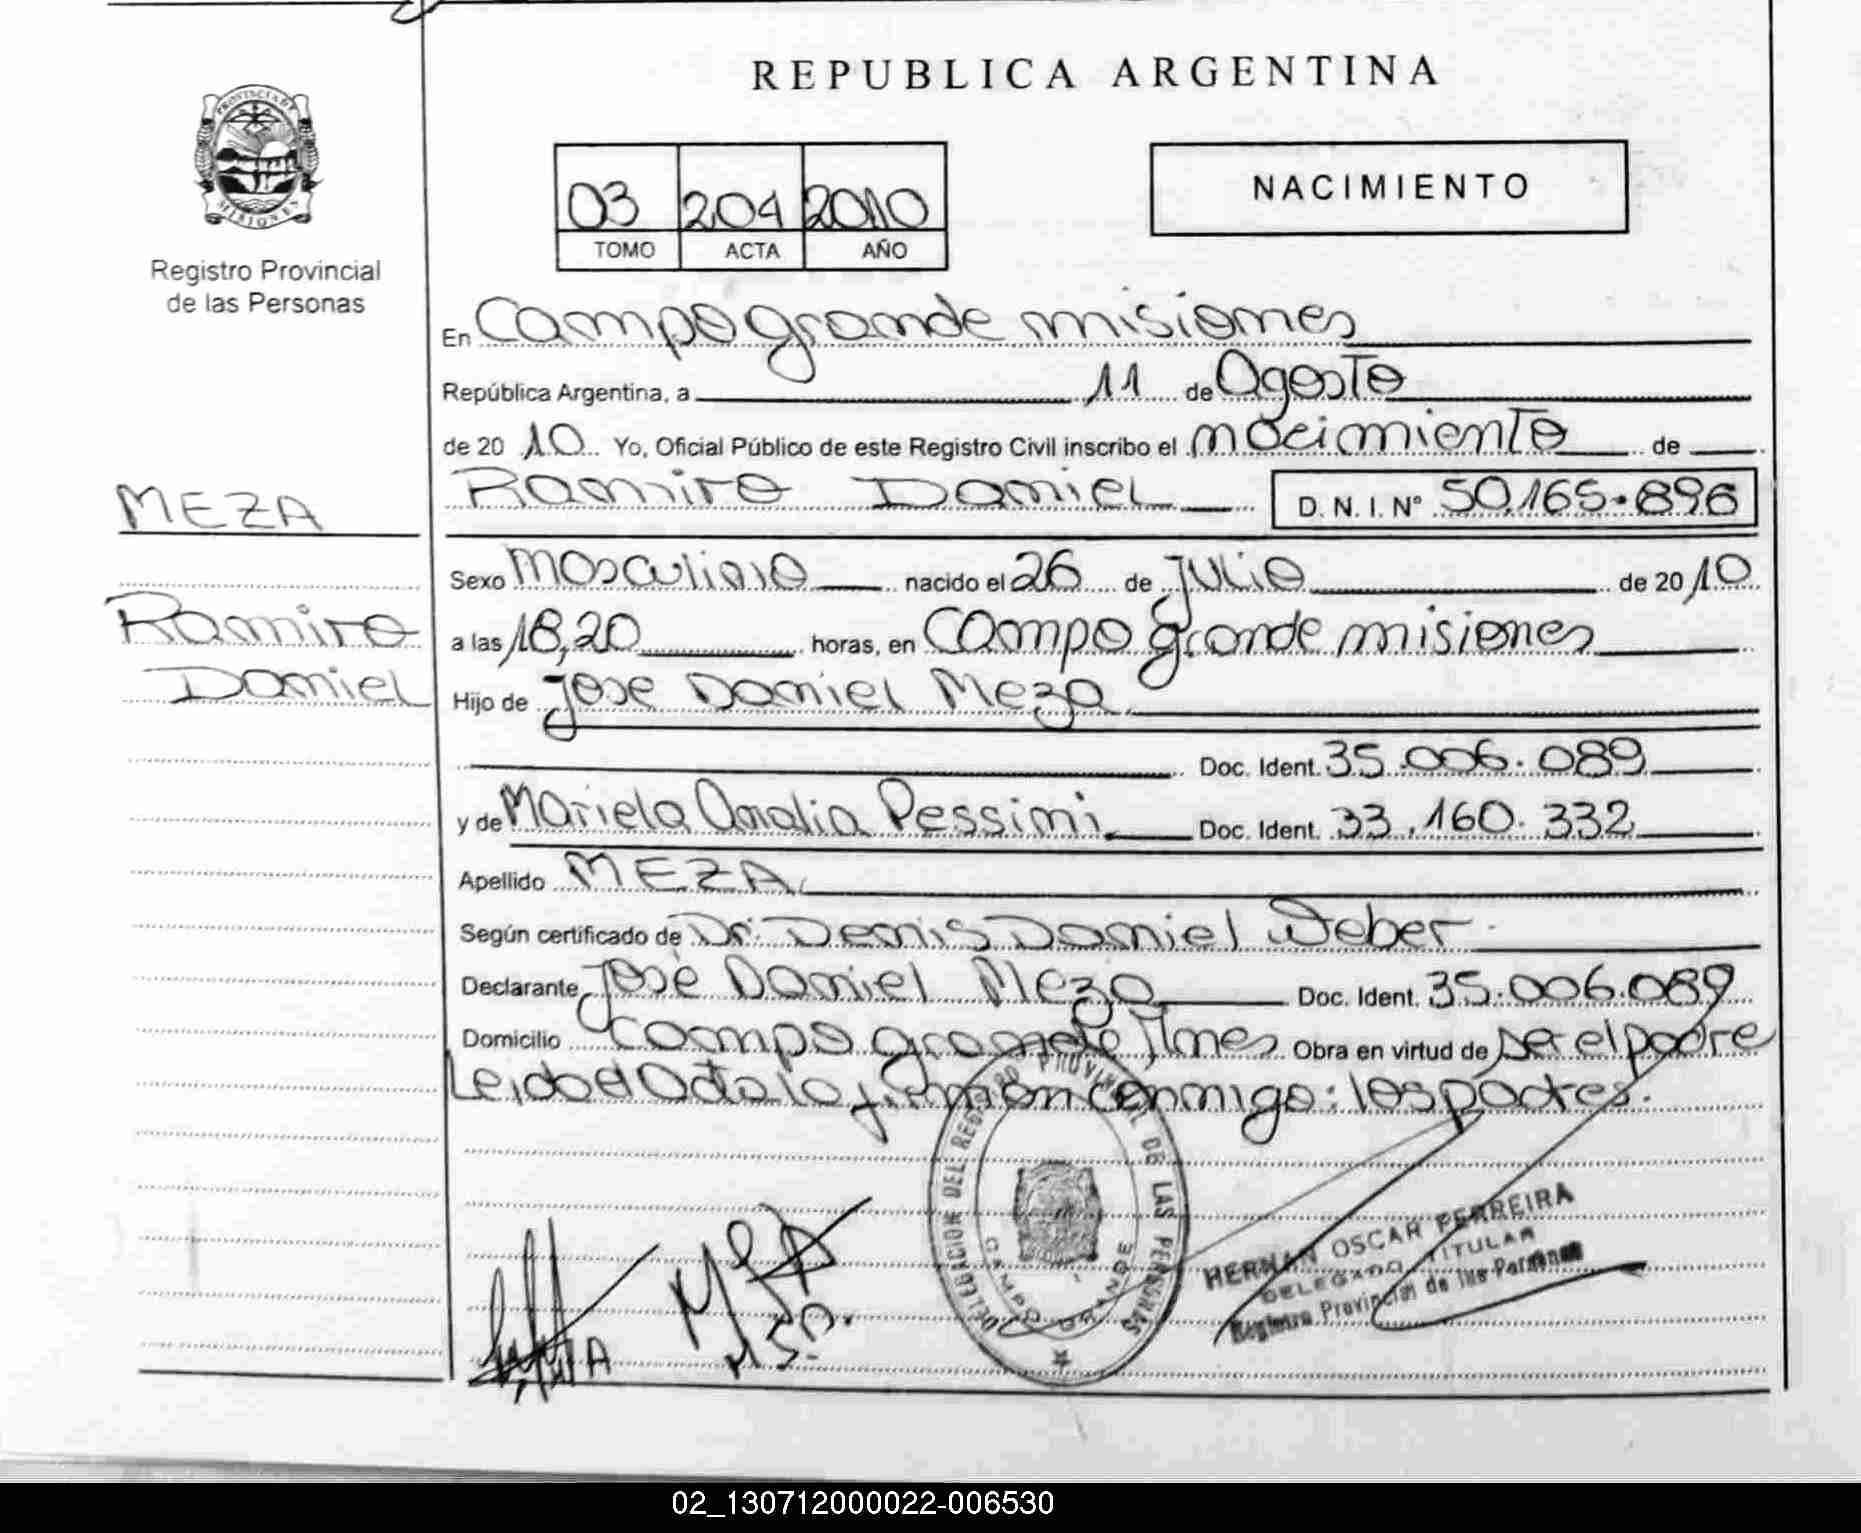 REPUBLICA ARGENTINA
PROVINCIA DE
MISIONES
Registro Provincial
de las Personas
03 204 2010
TOMO ACTA AÑO
NACIMIENTO
En Campo grande misiones
República Argentina, a 11 de Agosto
de 20 10 Yo, Oficial Público de este Registro Civil inscribo el nacimiento de
MEZA
Ramiro Daniel D. N. I. N° 50.165.896
Sexo masculino nacido el 26 de Julio de 20 10
Ramiro
Daniel
a las 18,20 horas, en Campo grande misiones
Hijo de Jose Daniel Meza
Doc. Ident. 35.006.089
y de Mariela Analia Pessini Doc. Ident. 33.160.332
Apellido MEZA
Según certificado de Dr. Denis Daniel Weber
Declarante José Daniel Meza Doc. Ident. 35.006.089
Domicilio Campo grande Mnes Obra en virtud de ser el padre
Leida el Acta la firman conmigo: los padres.
DELEGACION DEL REGISTRO PROVINCIAL DE LAS PERSONAS
CAMPO GRANDE
HERNAN OSCAR FERREIRA
DELEGADO TITULAR
Registro Provincial de las Personas
02_130712000022-006530